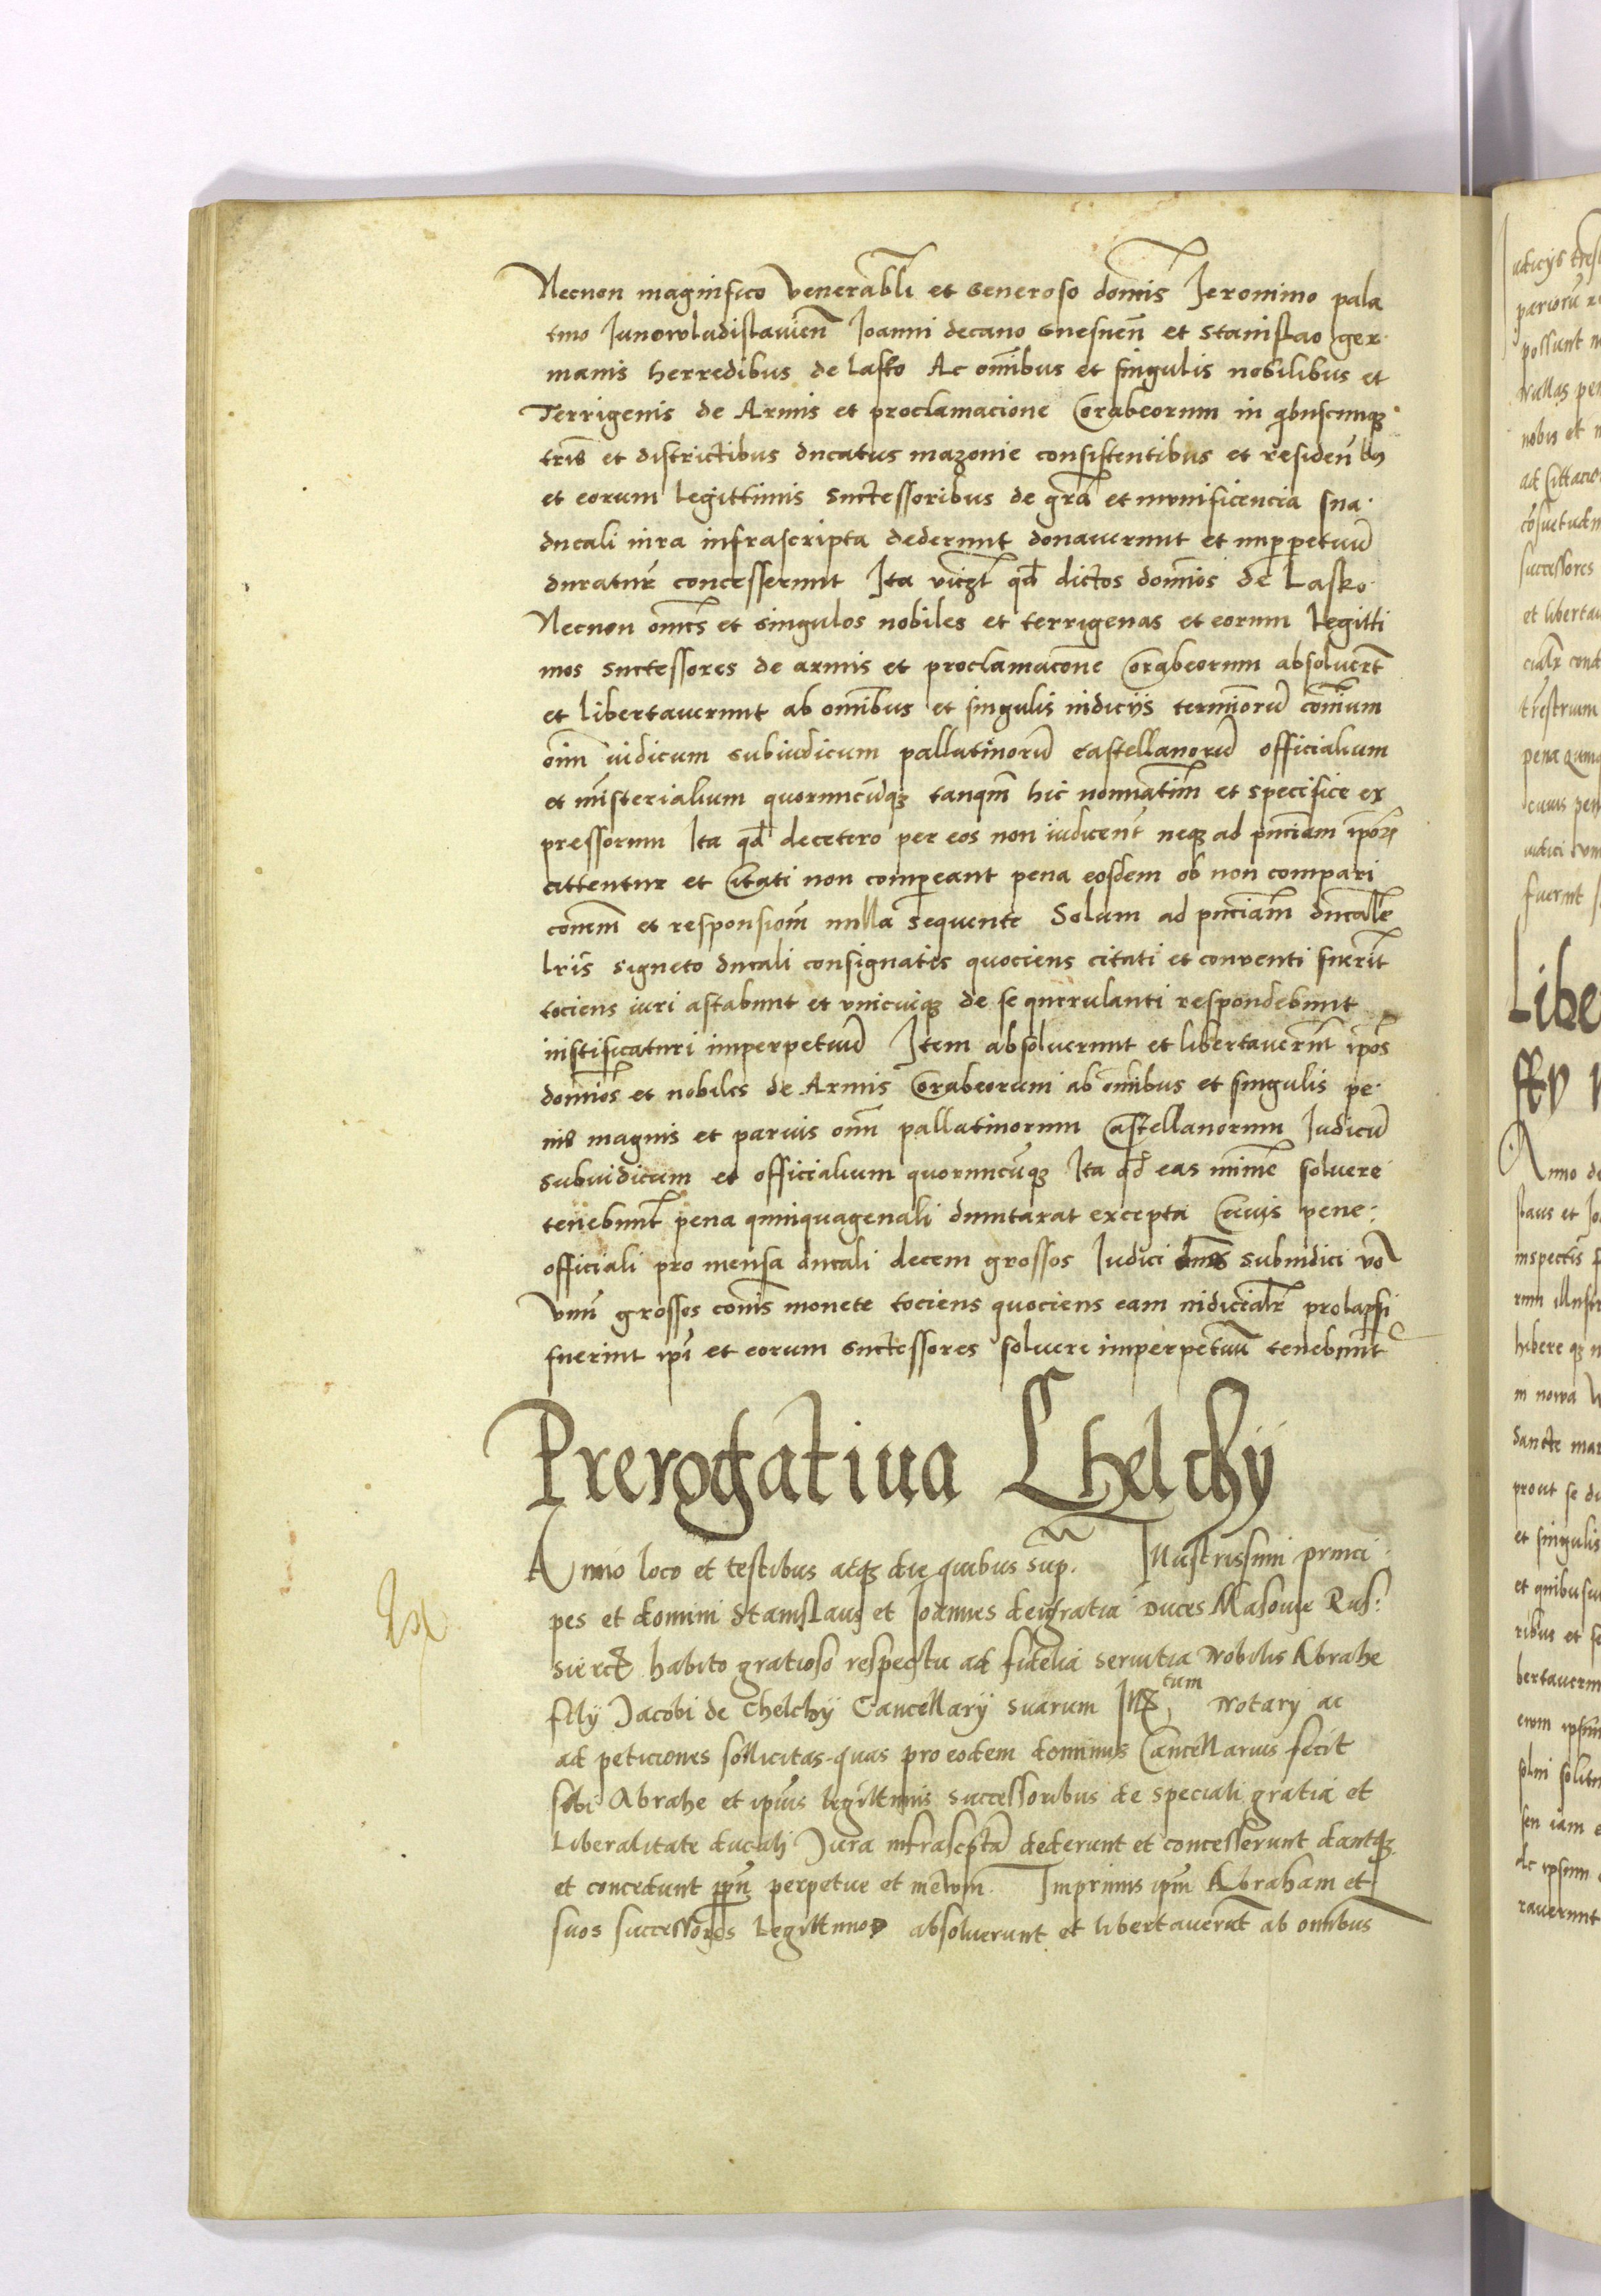 Necnon magnifico venerabli et generoso domis Jeronimo pala
tino Junowladislavien Joanni decano gnesnen et Stanislao ger
manis herredibus de lasko Ac omibus et singulis nobilibus et
Terrigenis de Armis et proclamacione Corabeorum in qbuscunq
tris et districtibus ducatus mazovie consistentibus et residen bus
et eorum legittimis successoribus de gra et munificencia sua
ducali iura infrascripta dederunt donauerunt et imperpetuu
duratur concesserunt Ita viczt qd dictos domios de Lasko
Necnon omes et singulos nobiles et terrigenas et eorum legitti
mos successores de armis et proclamacone Corabeorum absoluert
et libertauerunt ab omibus et singulis iudicijs terminoru comium
oim iudicum subiudicum pallatinoru castellanoru officialium
et misterialium quorumcuq tanqm hic nominatim et specifice ex
pressorum Ita qd decetero per eos non iudicent neq ad pnciam ipor
cittentur et Citati non compareant pena eosdem ob non compari
conem et responsiom nulla sequente Solum ad pnciam ducale
lris signeto ducali consignatis quociens citati et conventi fuerit
tociens iuri astabunt et vnicuiq de se querulanti respondebunt
iustificaturi imperpetuu Item absoluerunt et libertauerunt ipos
domios et nobiles de Armis Corabeorum ab omibus et singulis pe
nis magnis et paruis oim pallatinorum Castellanorum Iudicu
subiudicum et officialium quorumcuq Ita qd eas mime soluere
tenebunt pena quinquagenali dumtaxat excepta Cuius pene
officiali pro mensa ducali decem grossos Iudici subiudici vo
vnu grossos comis monete tociens quociens eam iudicialr prolapsi
fuerint ipi et eorum successores soluere imperpetuu tenebunt
Prerogatiua Chelchy
Anno loco et testibus atq die quibus sup. Illustrissimi princi
pes et domini Stanislaus et Joannes dei gratia Duces Masouie Rus:
sie etc habito gratioso respectu ad fidelia seruitia Nobilis Abrahe
filij Jacobi de Chelchy Cancellarij suarum Ill tum Notarij ac
ad peticiones sollicitas quas pro eodem dominus Cancellarius fecit
sibi Abrahe et ipius legittimis successoribus de speciali gratia et
Liberalitate ducali Jura infrascpta dederunt et concesserunt dantq
et concedunt ppn perpetue et in ewm Imprimis ipm Abraham et
suos successores Legittimos absoluerunt et libertauerut ab omibus